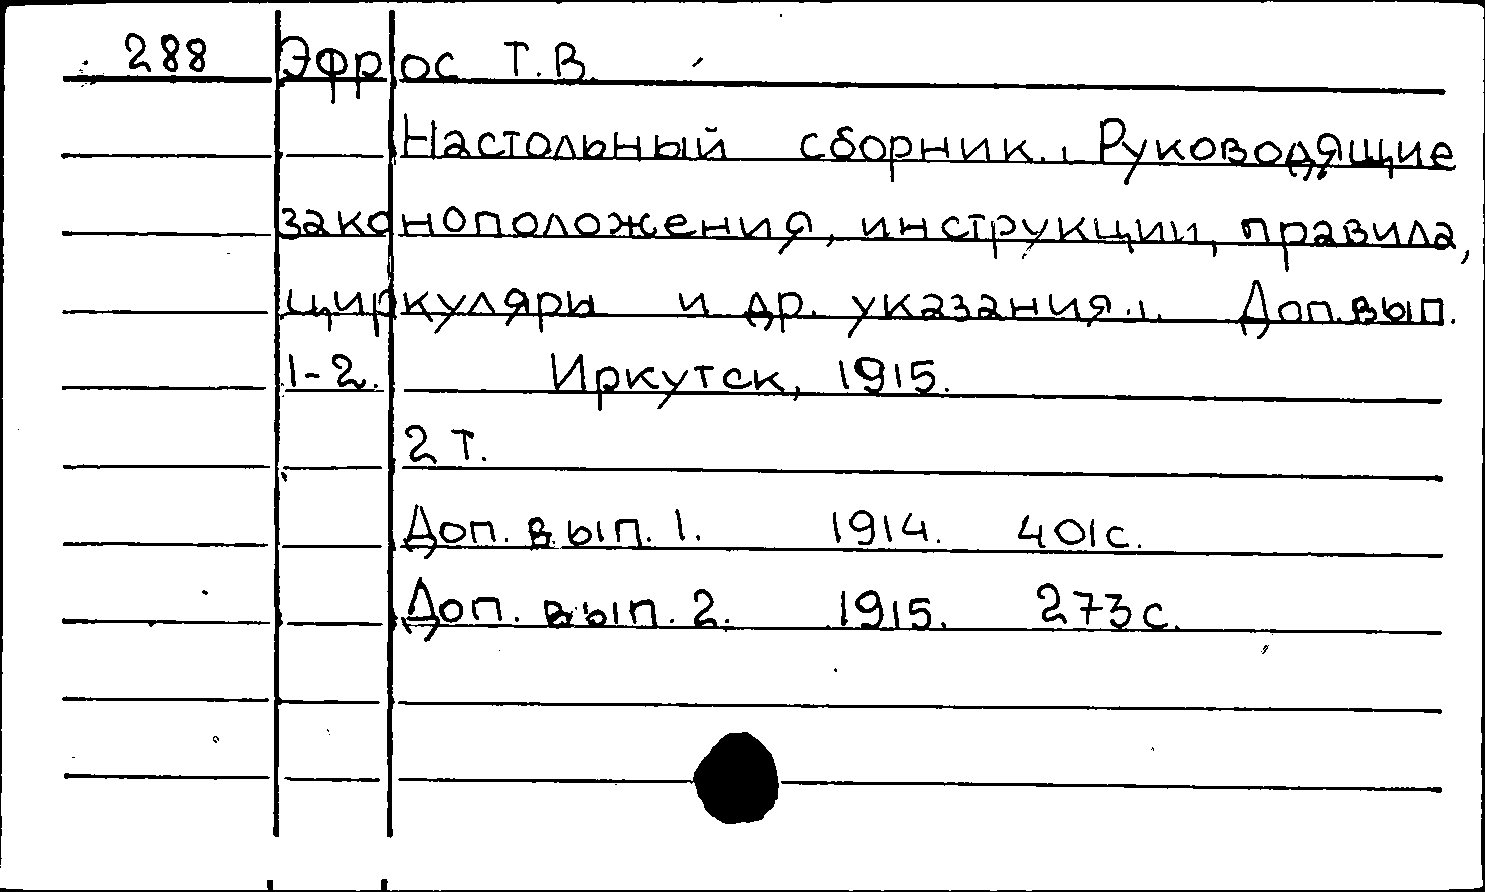 288 Эфрос Т.В.
Настольный сборник. Руководящие
законоположения, инструкции, правила,
циркуляры и др. указания. Доп. вып.
1-2. Иркутск, 1915.
2 т.
Доп. вып. 1. 1914. 401 с.
Доп. вып. 2. 1915. 273 с.